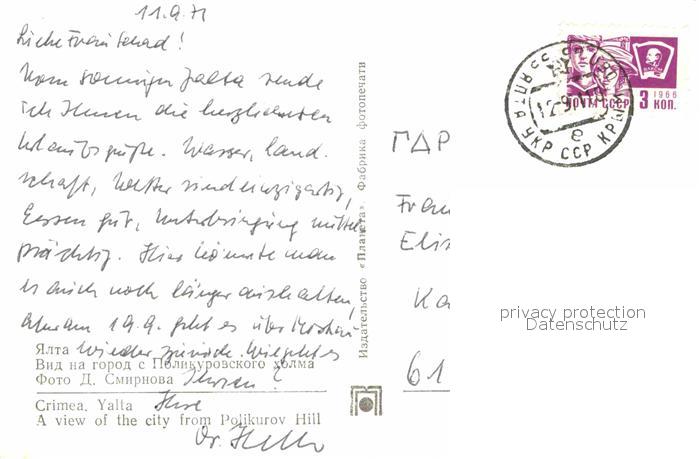 11.9.71
Liebe Frau Schad!
Vom sonnigen Jalta sende
ich Ihnen die herzlichsten
Urlaubsgrüße. Wasser, Land-
schaft, Wetter sind einzigartig,
Essen gut, Unterbringung mittel-
prächtig. Hier könnte man
es auch noch länger aushalten,
aber am 19.9. geht es über Moskau
wieder zurück. Wie geht es
Ihnen?
Ihre
Dr.
Ялта
Вид на город с Поликуровского холма
Фото Д. Смирнова
Crimea. Yalta
A view of the city from Polikurov Hill
Издательство «Планета». Фабрика фотопечати
ПОЧТА СССР
3 КОП.
1966
ЯЛТА УКР ССР КРЫМ
ГДР
Frau
Elis
Ka
61
privacy protection
Datenschutz